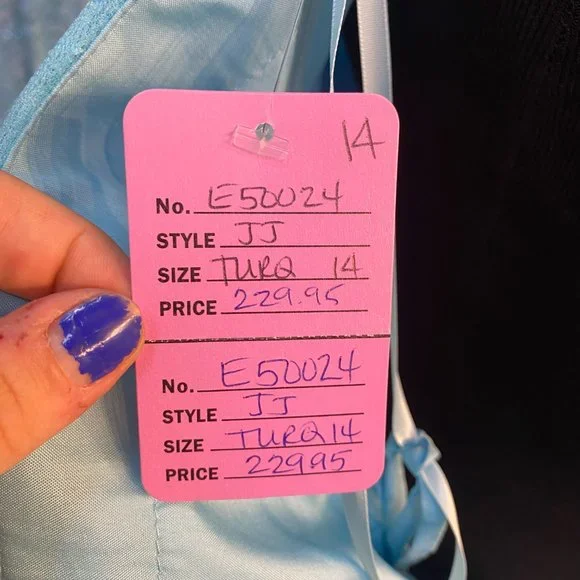 14
No. E50024
STYLE JJ
SIZE TURQ 14
PRICE 229.95
No. E50024
STYLE JJ
SIZE TURQ 14
PRICE 22995